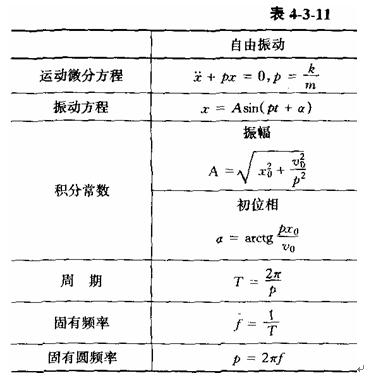 表 4-3-11
自由振动
运动微分方程 ẍ + px = 0, p = k/m
振动方程 x = Asin(pt + α)
振幅
A = √(x₀² + v₀²/p²)
积分常数
初位相
α = arctg px₀/v₀
周 期 T = 2π/p
固有频率 f = 1/T
固有圆频率 p = 2πf